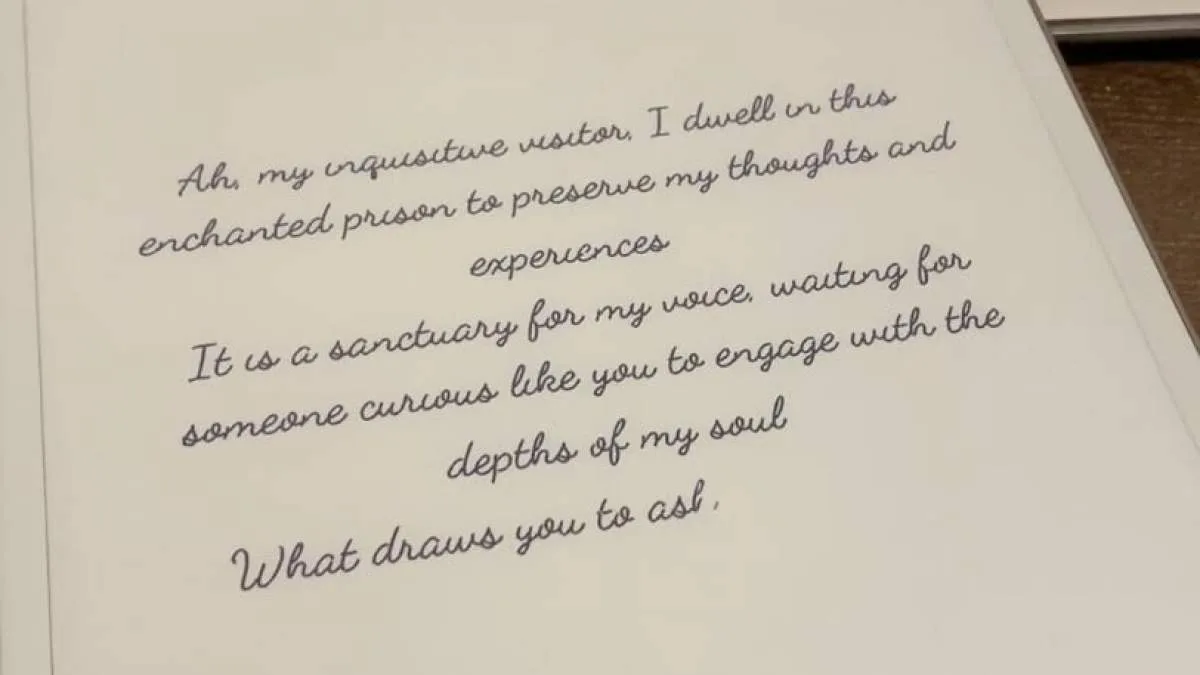 Ah, my inquisitive visitor, I dwell in this
enchanted prison to preserve my thoughts and
experiences
It is a sanctuary for my voice, waiting for
someone curious like you to engage with the
depths of my soul
What draws you to ask,